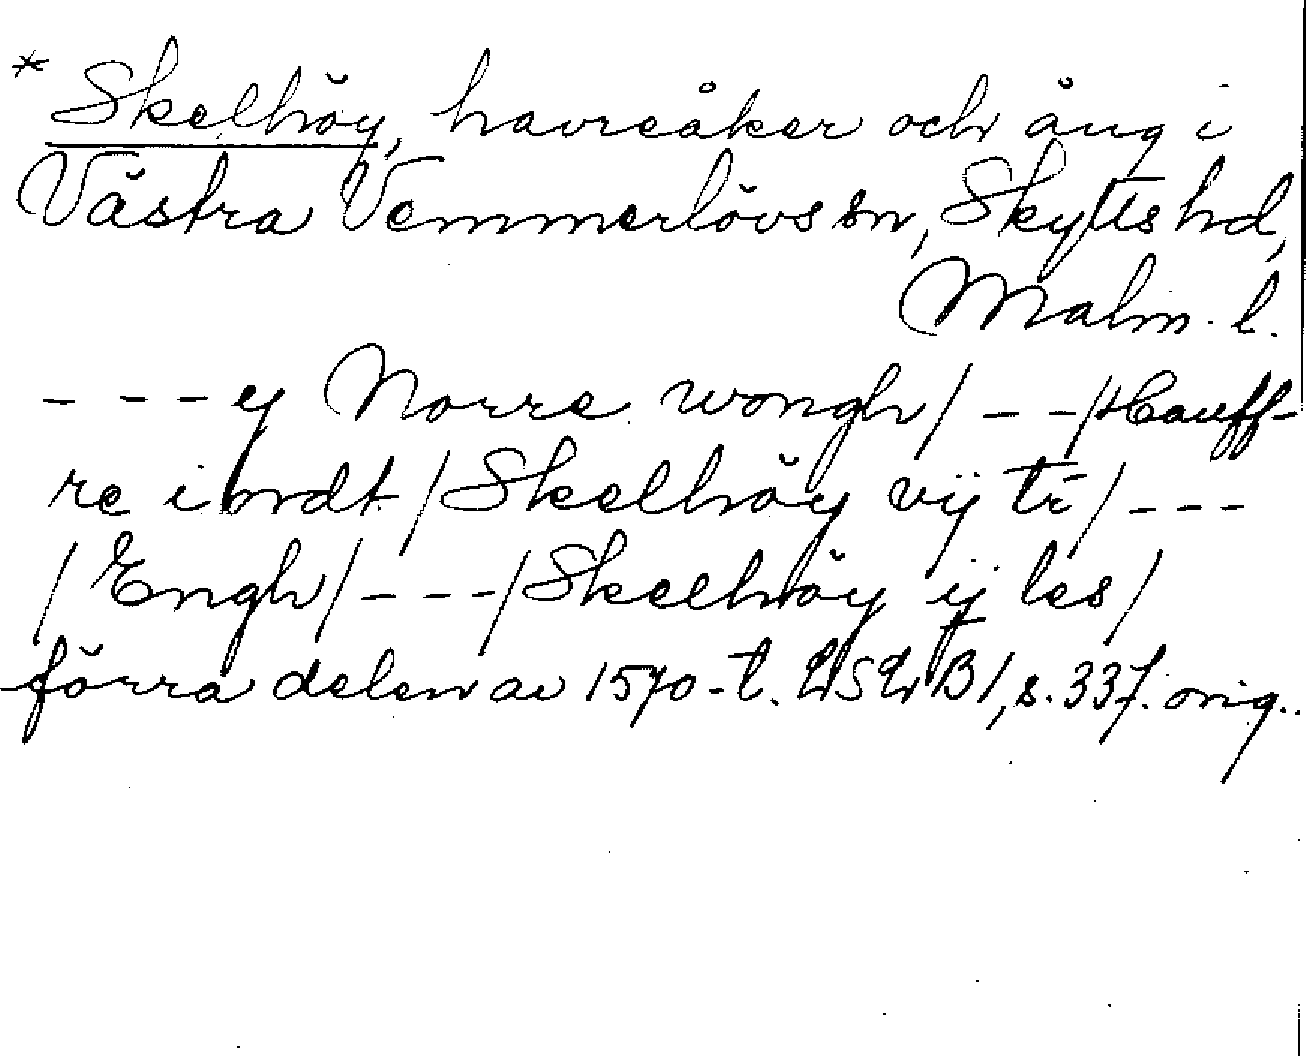 * Skelhöy, havreåker och äng i
Västra Vemmerlövs sn, Skytts hd,
Malm. l.
- - - y Norre wongh / - - / Hauff-
re iordt / Skelhöy vij tr / - - -
/ Engh / - - - / Skelhöy ij les /
förra delen av 1570-t. LSLB 1, s. 337. orig.